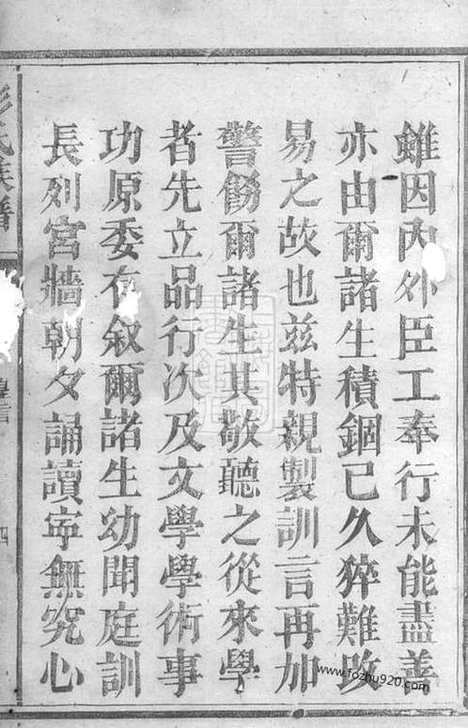 雖因內外臣工奉行未能盡善
亦由爾諸生積錮已久猝難改
易之故也兹特親製訓言再加
警飭爾諸生其敬聽之從來學
者先立品行次及文學學術事
功原委有叙爾諸生幼聞庭訓
長列宮牆朝夕誦讀寧無究心
氏族譜
四
www.fozhu920.com